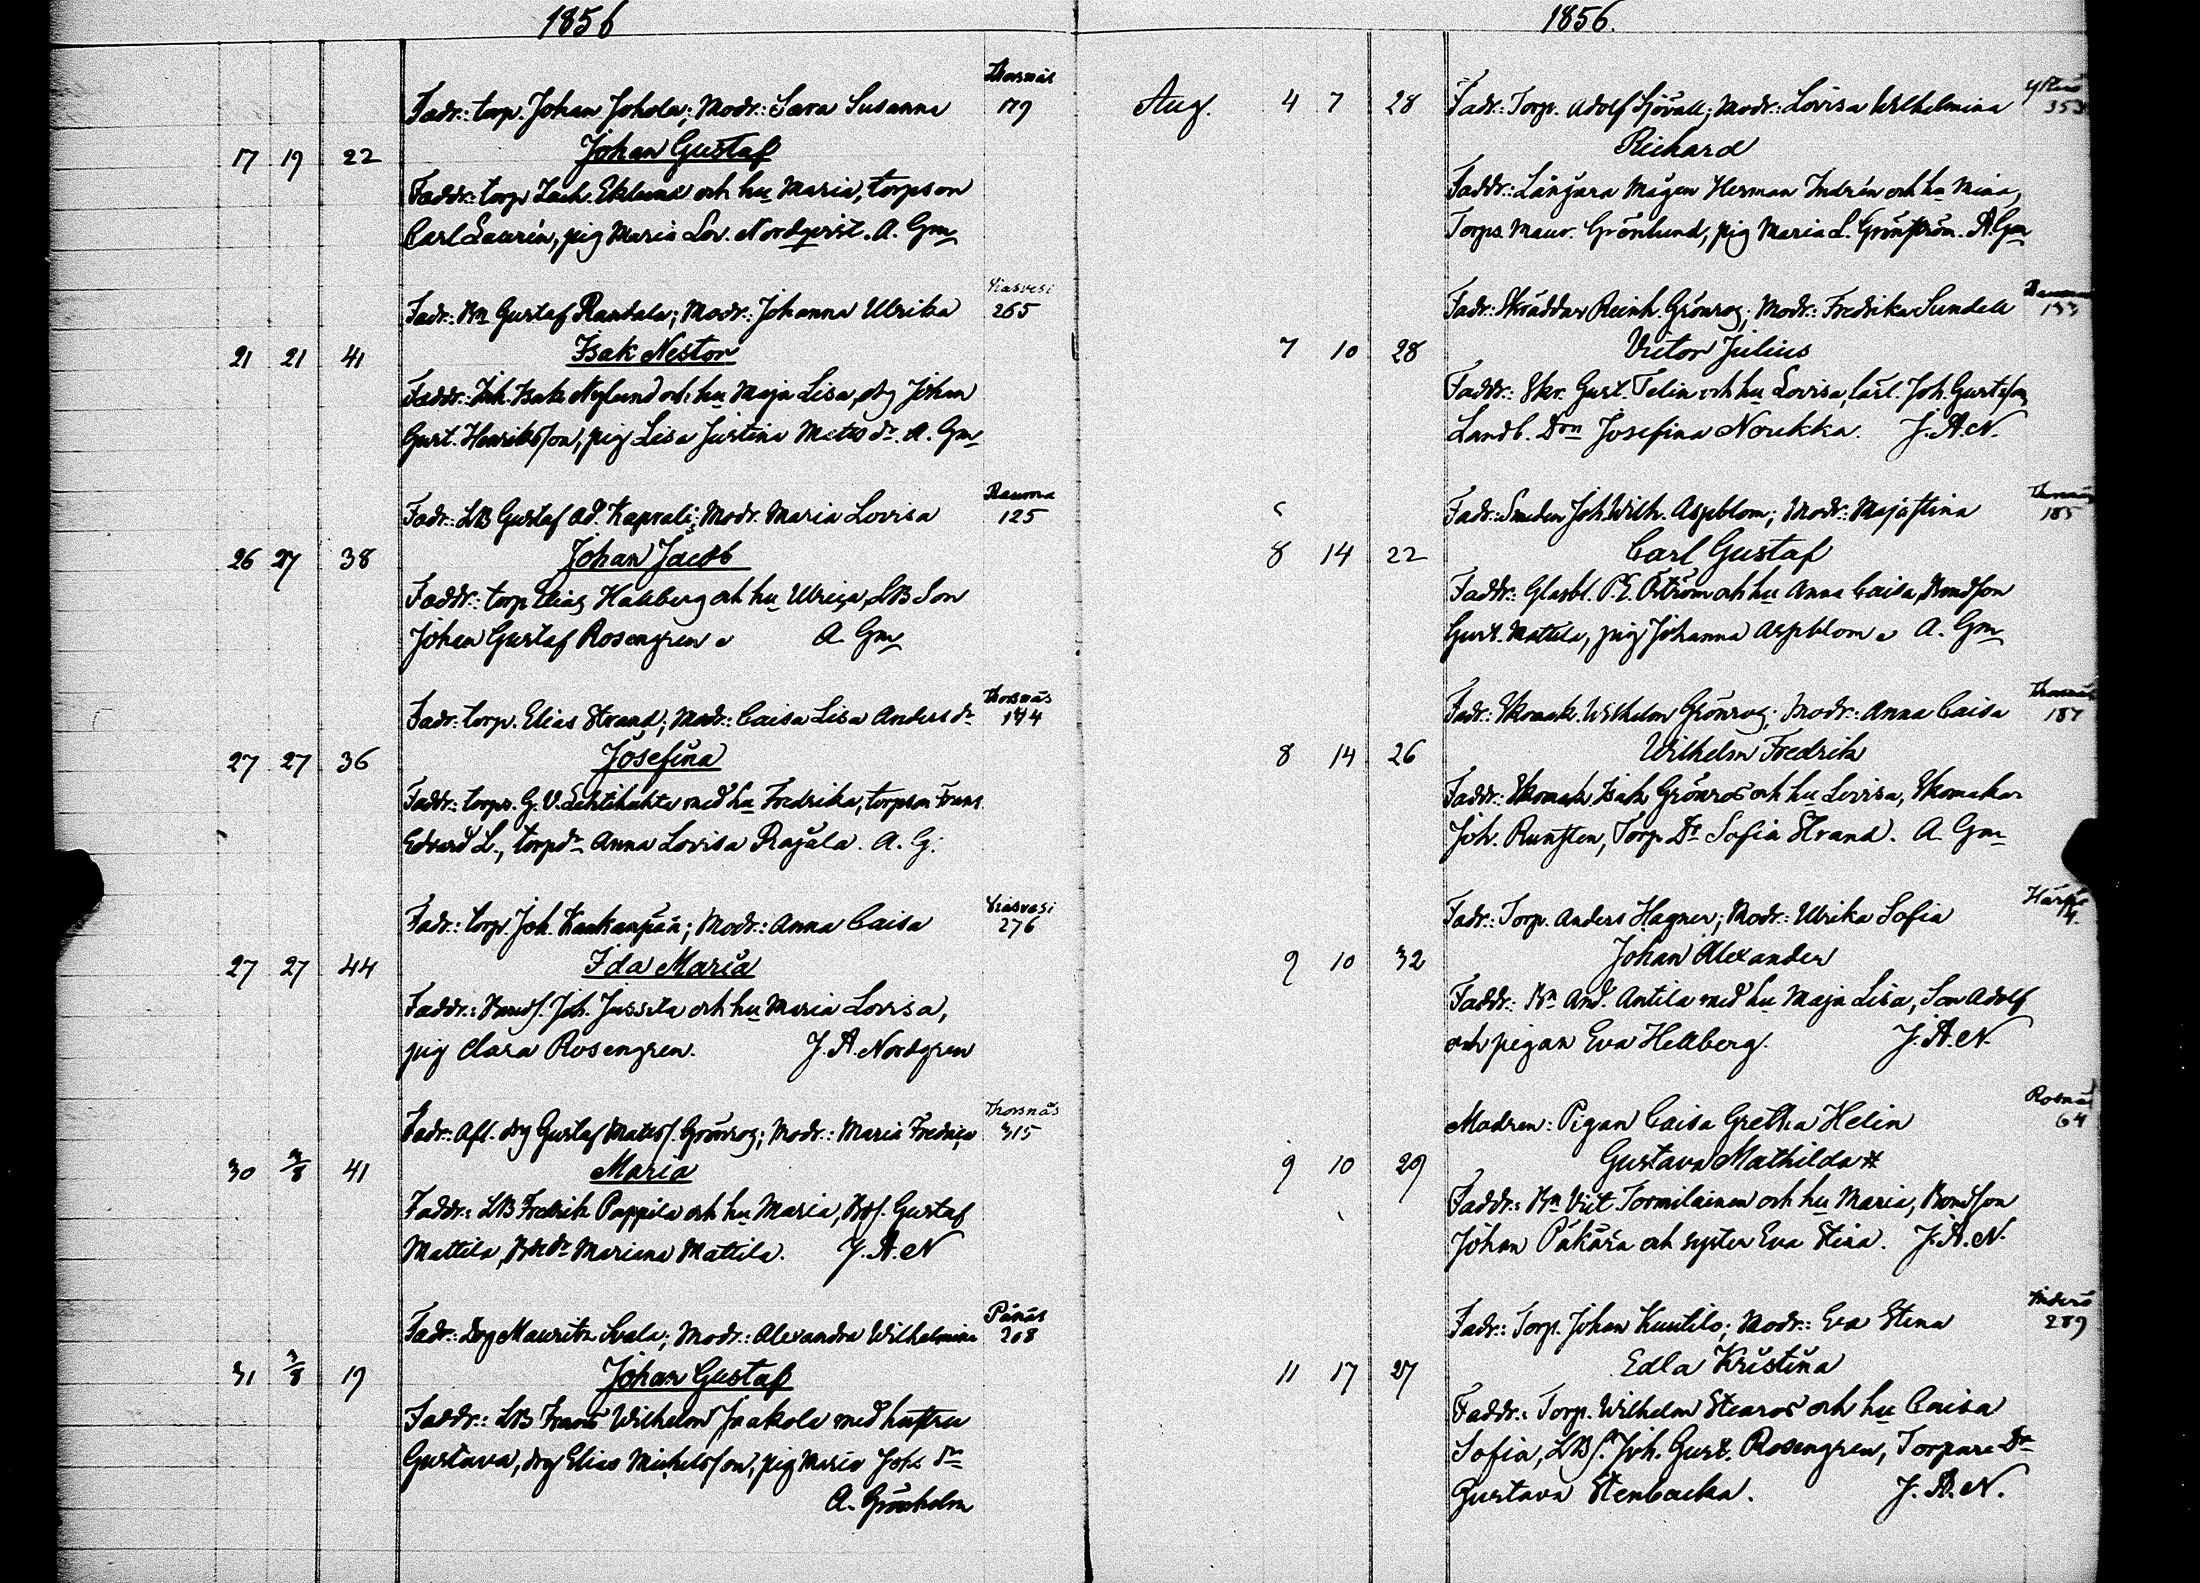 1856
Thorsnäs
Fadr.: torp. Johan Johola; Modr.: Sara Susanna 179
17 19 22 Johan Gustaf
Faddr.: torp Zach. Eklund och hu Maria, torpson
Carl Laurén, pig Maria Lov. Nordqvist. A. Gm
Viasvesi
Fadr.: Bn Gustaf Rantala; Modr.: Johanna Ulrika 265
21 21 41 Isak Nestor
Faddr.: Inh. Isak Nylund och hu Maja Lisa, drg Johan
Gust. Henriksson, pig Lisa Justina Mats dr. A. Gm
Rauma
Fadr.: LB Gustaf Ad. Kaprali; Modr. Maria Lovisa 125
26 27 38 Johan Jacob
Faddr.: torp Elias Hallberg och hu Ulrica, LB Son
Johan Gustaf Rosengren A Gm
Thorsnäs
Fadr.: torp. Elias Strand; Modr.: Caisa Lisa Anders dr 194
27 27 36 Josefina
Faddr.: torp. G. V. Lehtilahti med hu Fredrika, torpson Frans
Edvard L., torpdr Anna Lovisa Rajala. A. G.
Viasvesi
Fadr.: torp. Joh. Kankanpää; Modr.: Anna Caisa 276
27 27 44 Ida Maria
Faddr.: Bonds. Joh. Jussila och hu Maria Lovisa,
pig Clara Rosengren. J. A. Nordgren
Thorsnäs
Fadr.: Afl. drg Gustaf Matss. Grönroos; Modr.: Maria Fredrica 315
30 3/8 41 Maria
Faddr.: LB Fredrik Pappila och hu Maria, Bds. Gustaf
Mattila, Bde dr Mariana Mattila. J. A. N
Pånäs
Fadr.: Drg Mauritz Svala; Modr.: Alexandra Wilhelmina 208
31 3/8 19 Johan Gustaf
Faddr.: LB Frans Wilhelm Jaakola med hustru
Gustava, drg Elias Michelsson, pig Maria Johs dr
A. Grönholm
1856.
Aug. 4 7 28 Fadr.: Torp. Adolf Sjövall; Modr.: Lovisa Wilhelmina 353
Richard
Faddr.: Långara Mågen Herman Indrén och hu Mina,
Torps. Maur. Grönlund, pig Maria L. Grönström. A. Gm
Fadr.: Skräddar Reinh. Grönroos; Modr.: Fredrika Sundell 133
7 10 28 Victor Julius
Faddr.: Skr. Gust. Felin och hu Lovisa, Carl. Joh. Gustafson
Landb. Don Josefina Noukka. J. A. N.
Thorsnäs
Fadr.: Smeden Joh. Wilh. Aspblom; Modr.: Maja Stina 185
8 14 22 Carl Gustaf
Faddr.: Glasbl. P. E. Öström och hu Anna Caisa, Bondson
Gust. Mattila, pig Johanna Aspblom A. Gm
Thorsnäs
Fadr.: Skomak. Wilhelm Grönroos; Modr.: Anna Caisa 187
8 14 26 Wilhelm Fredrik
Faddr.: Skomak Isak Grönroos och hu Lovisa, Skomakar
Joh. Runsten, Torp. Dr Sofia Strand. A Gm
Härpö
Fadr.: Torp. Anders Hagner; Modr.: Ulrika Sofia 14
9 10 32 Johan Alexander
Faddr.: Bn And. Antila med hu Maja Lisa, Son Adolf
och pigan Eva Hellberg. J. A. N.
Rosnäs
Modren: Pigan Caisa Gretha Helin 64
9 10 29 Gustava Mathilda #
Faddr.: Bn Vict. Tormilainen och hu Maria, Bondson
Johan Päkärä och syster Eva Stina. J. A. N.
Inderö
Fadr.: Torp. Johan Kuutilo; Modr.: Eva Stina 289
11 17 27 Edla Kristina
Faddr.: Torp. Wilhelm Stearos och hu Caisa
Sofia, LB s. Joh. Gust. Rosengren, Torpare Dr
Gustava Stenbacka. J. A. N.